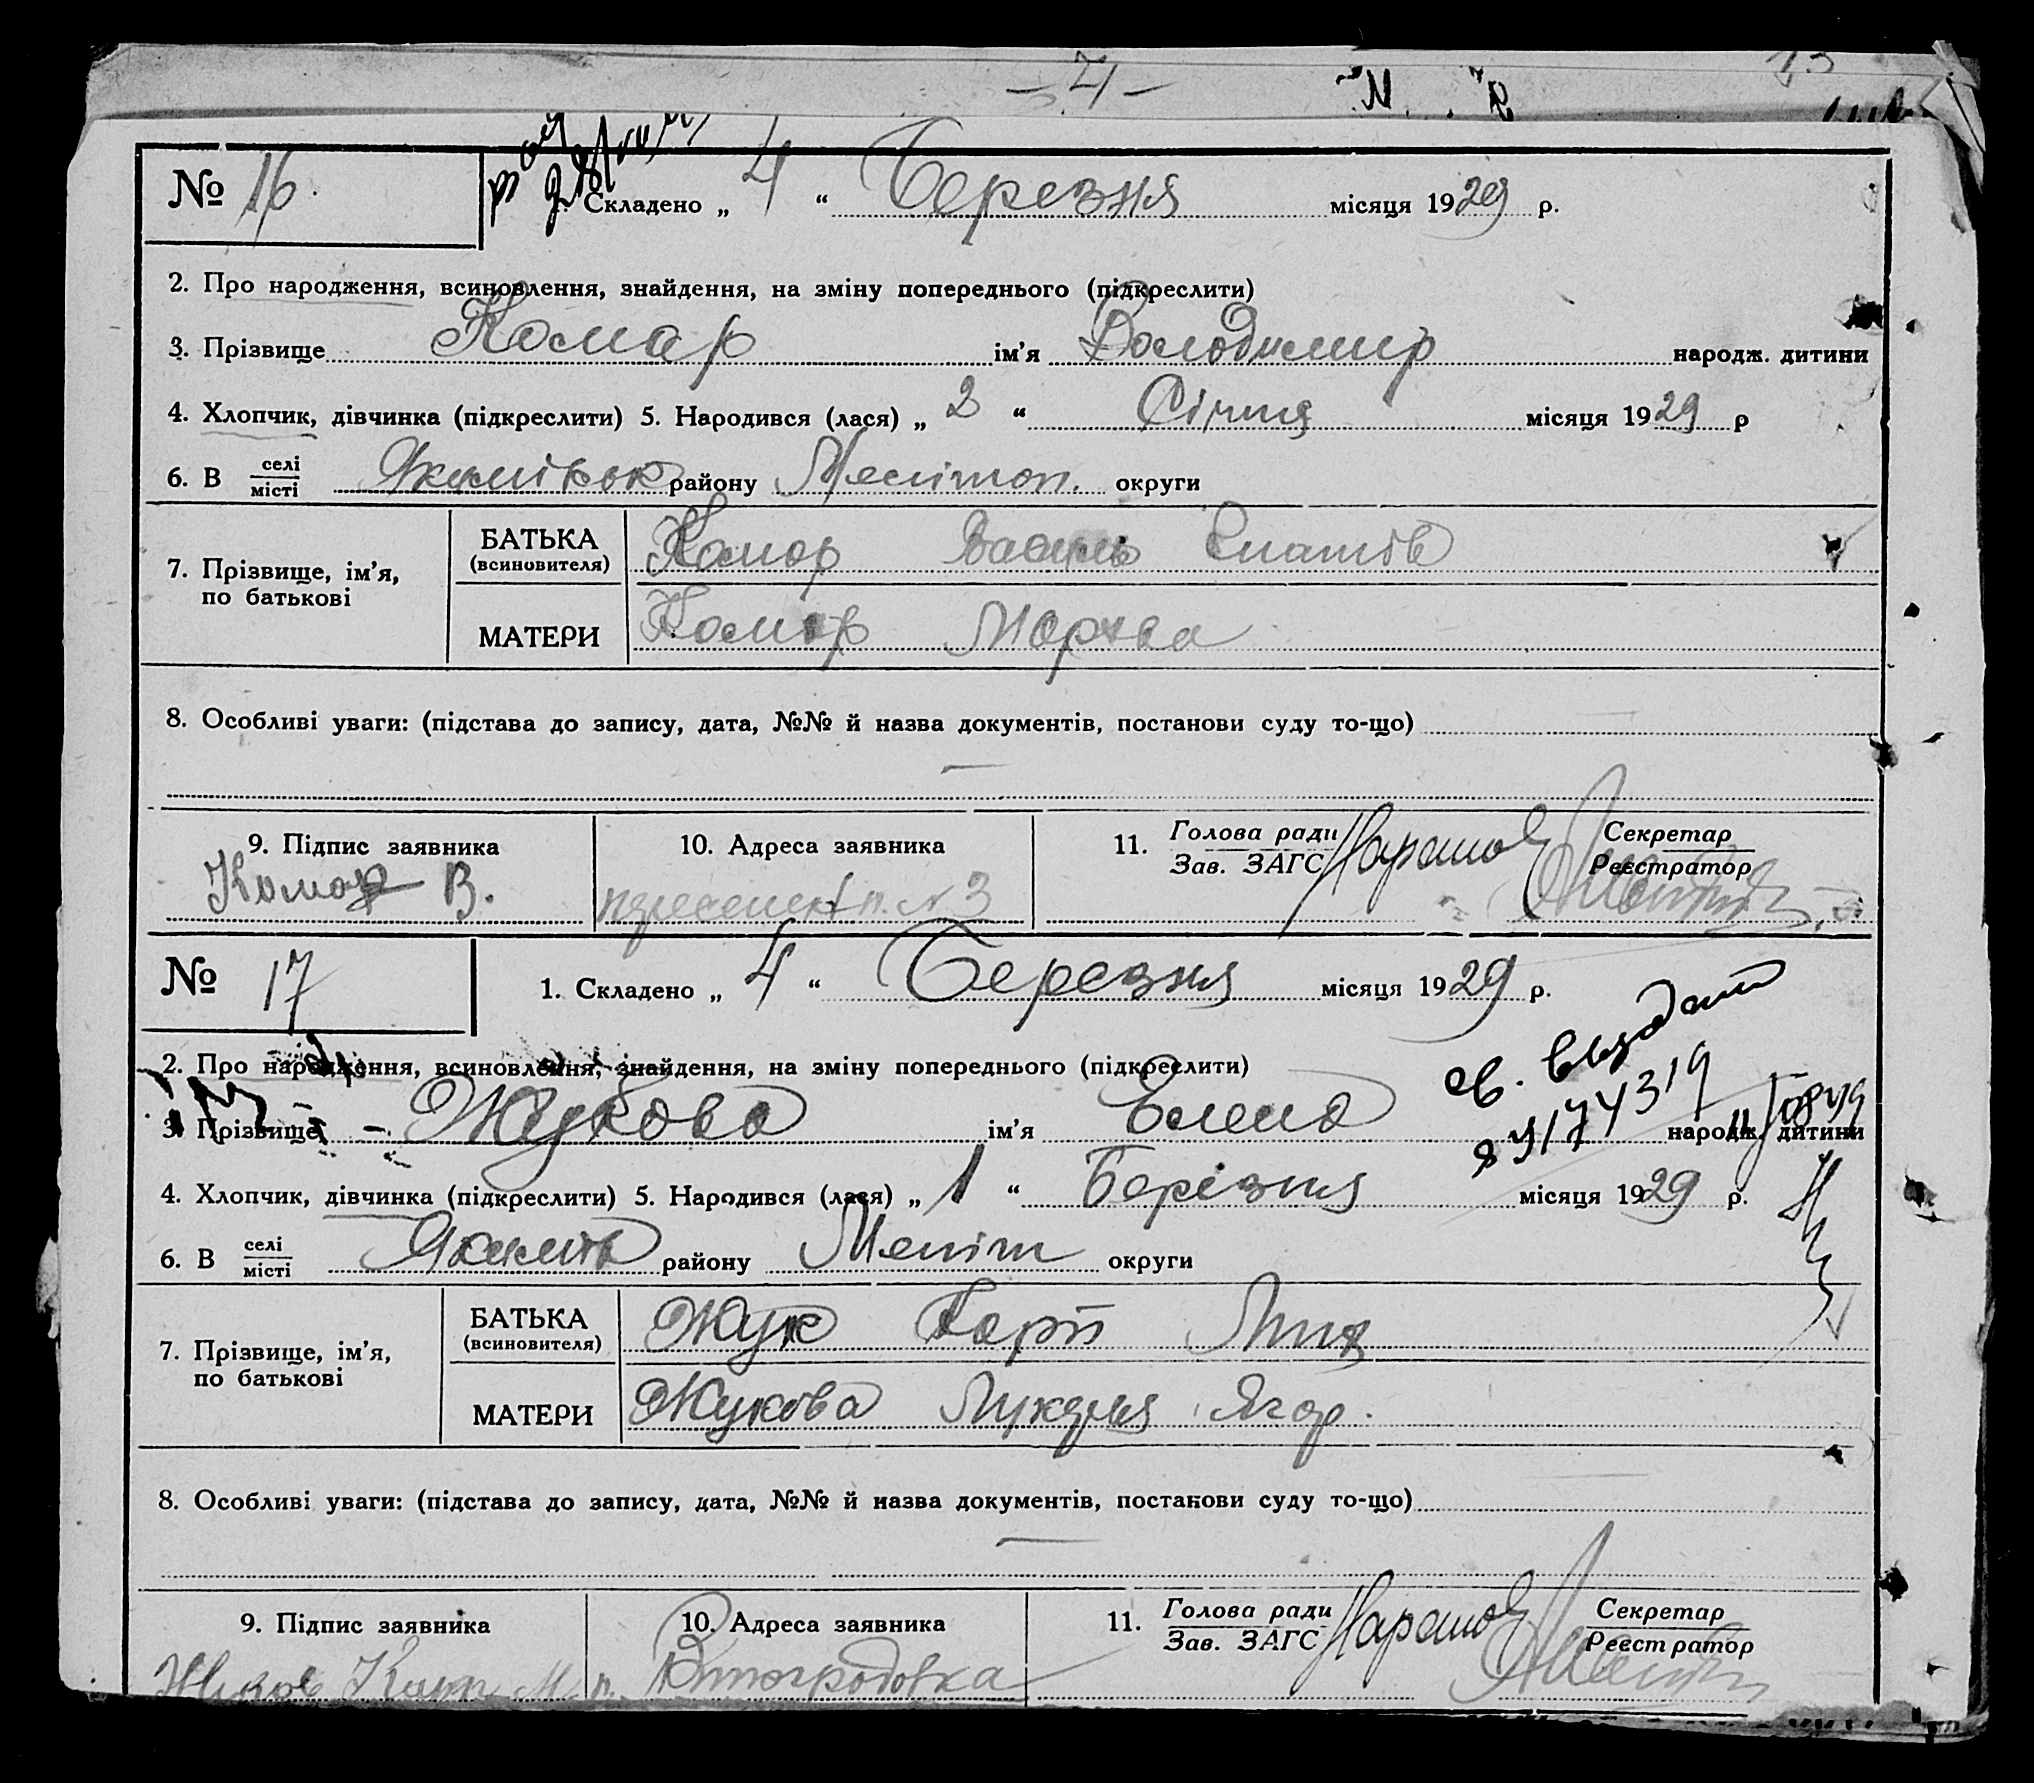 - 4 -
№ 16. Складено „ 4 “ Березня місяця 1929 р.
2. Про народження, всиновлення, знайдення, на зміну попереднього (підкреслити)
3. Прізвище Комар ім’я Володимир народж. дитини
4. Хлопчик, дівчинка (підкреслити) 5. Народився (лася) „ 2 “ Січня місяця 1929 р
6. В селі місті району Мелітоп. округи
7. Прізвище, ім’я, по батькові
БАТЬКА (всиновителя) Комар Василь
МАТЕРИ Комар
8. Особливі уваги: (підстава до запису, дата, №№ й назва документів, постанови суду то-що)
—
9. Підпис заявника
10. Адреса заявника
11. Голова ради Зав. ЗАГС
Секретар Реєстратор
Комар В.
№ 3
№ 17 1. Складено „ 4 “ Березня місяця 1929 р.
2. Про народження, всиновлення, знайдення, на зміну попереднього (підкреслити)
св. выдают
3. Прізвище Жукова ім’я Елена народж. дитини
4. Хлопчик, дівчинка (підкреслити) 5. Народився (лася) „ 1 “ Берізня місяця 1929 р.
6. В селі місті району Меліт округи
7. Прізвище, ім’я, по батькові
БАТЬКА (всиновителя) Жук
МАТЕРИ Жукова Ягор.
8. Особливі уваги: (підстава до запису, дата, №№ й назва документів, постанови суду то-що)
—
9. Підпис заявника
10. Адреса заявника
11. Голова ради Зав. ЗАГС
Секретар Реєстратор